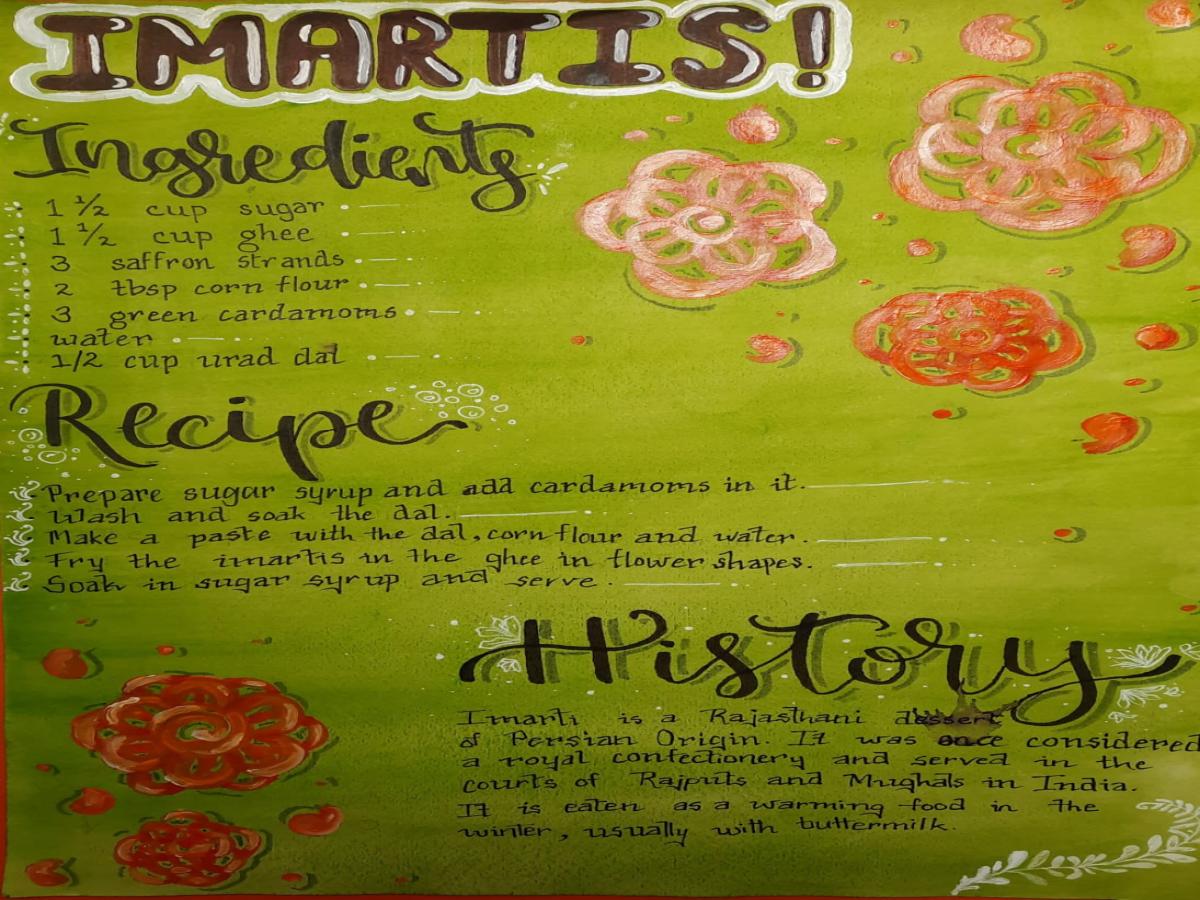 IMARTIS!
Ingredients
1 ½ cup sugar
1 ½ cup ghee
3 saffron strands
2 tbsp corn flour
3 green cardamoms
water
1/2 cup urad dal
Recipe
Prepare sugar syrup and add cardamoms in it.
Wash and soak the dal.
Make a paste with the dal, corn flour and water.
Fry the imartis in the ghee in flower shapes.
Soak in sugar syrup and serve.
History
Imarti is a Rajasthani dessert
of Persian Origin. It was once considered
a royal confectionery and served in the
courts of Rajputs and Mughals in India.
It is eaten as a warming food in the
winter, usually with buttermilk.